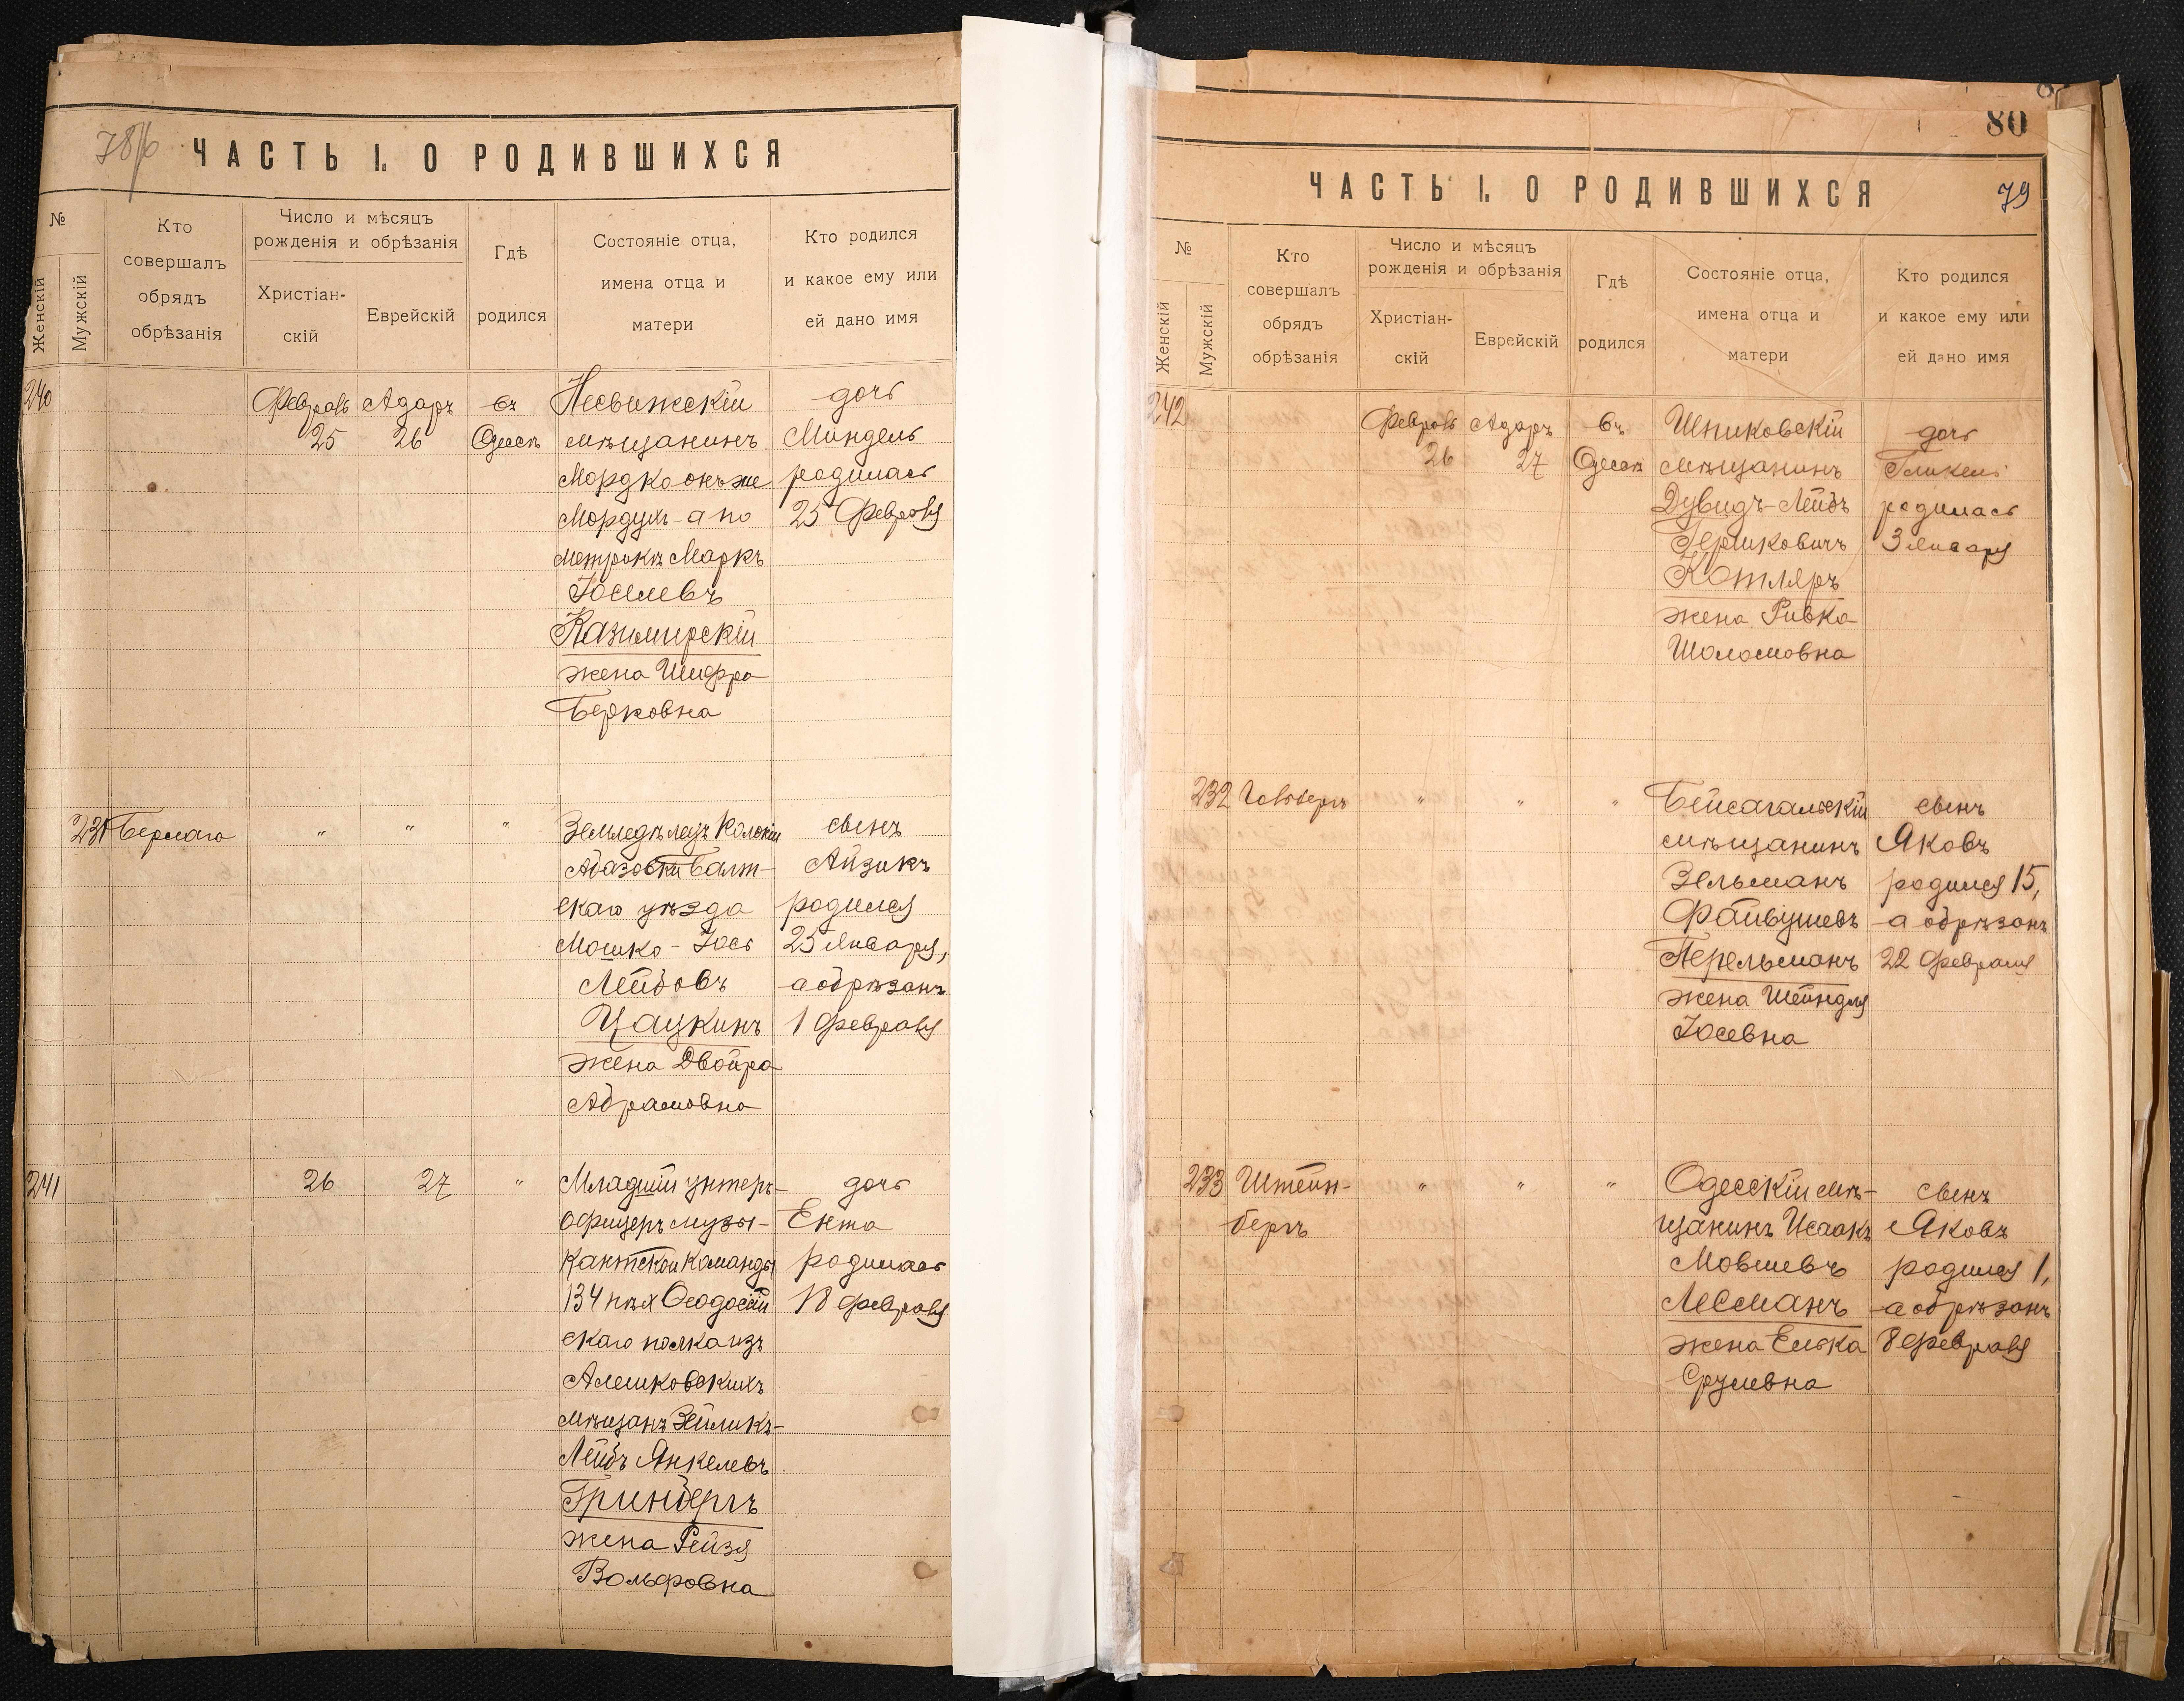 ЧАСТЬ I. О РОДИВШИХСЯ
№
Женскій
Мужскій
Кто
совершалъ
обрядъ
обрѣзанія
Число и мѣсяцъ
рожденія и обрѣзанія
Христіан-
скій
Еврейскій
Гдѣ
родился
Состояніе отца,
имена отца и
матери
Кто родился
и какое ему или
ей дано имя
240
Февраль
25
Адаръ
26
въ
Одессѣ
Несвижскій
мѣщанинъ
Мордко онъ же
Мордухъ - а по
метрикѣ Маркъ
Іоселевъ
Казимирскій
жена Шифра
Берковна
дочь
Миндель
родилась
25 Февраля
231
Бермаго
"
"
"
Земледѣлецъ Колоніи
Абазовки Балт-
скаго уѣзда
Мошко - Іось
Лейбовъ
Цацкинъ
жена Двойра
Абрамовна
сынъ
Айзикъ
родился
25 Января,
а обрѣзанъ
1 Февраля
241
26
27
"
Младшій унтеръ-
офицеръ музы-
кантской команды
134 пѣх Ѳеодосій
скаго полка изъ
Алешковскихъ
мѣщанъ Зейликъ-
Лейбъ Янкелевъ
Гринбергъ
жена Рейзя
Вольфовна
дочь
Ента
родилась
18 февраля
80
ЧАСТЬ I. О РОДИВШИХСЯ
79
№
Женскій
Мужскій
Кто
совершалъ
обрядъ
обрѣзанія
Число и мѣсяцъ
рожденія и обрѣзанія
Христіан-
скій
Еврейскій
Гдѣ
родился
Состояніе отца,
имена отца и
матери
Кто родился
и какое ему или
ей дано имя
242
Февраль
26
Адаръ
27
въ
Одессѣ
Шпиковскій
мѣщанинъ
Дувидъ-Лейбъ
Гершковичъ
Котляръ
жена Ривка
Шоломовна
дочь
Гликель
родилась
3 Января
232
Гольбергъ
"
"
"
Бейсагальскій
мѣщанинъ
Зельманъ
Файвушевъ
Перельманъ
жена Шейндля
Іосевна
сынъ
Яковъ
родился 15,
а обрѣзанъ
22 февраля
233
Штейн-
бергъ
"
"
"
Одесскій мѣ-
щанинъ Исаакъ
Мовшевъ
Лесманъ
жена Елька
Срулевна
сынъ
Яковъ
родился 1,
а обрѣзанъ
8 февраля